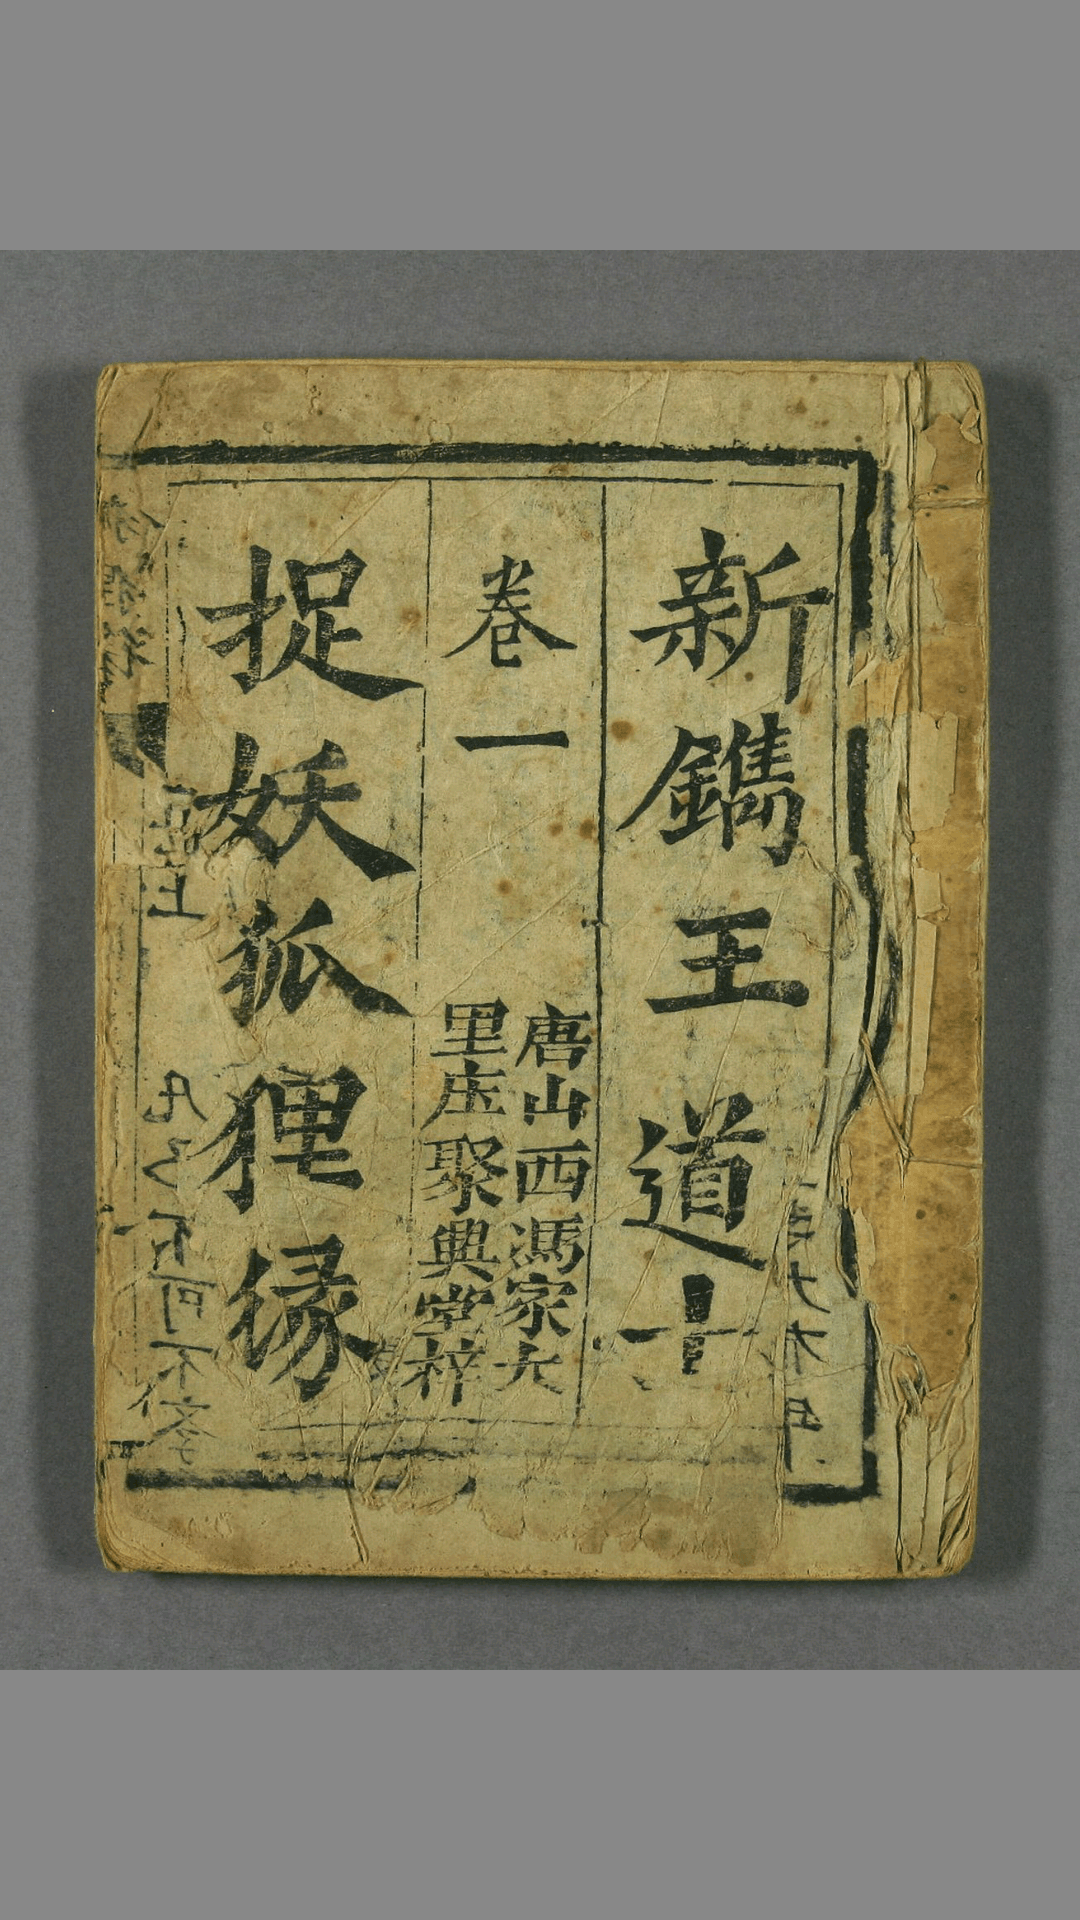 新鐫王道士
卷一
唐山西馮家大
里庄聚興堂梓
捉妖狐狸緣